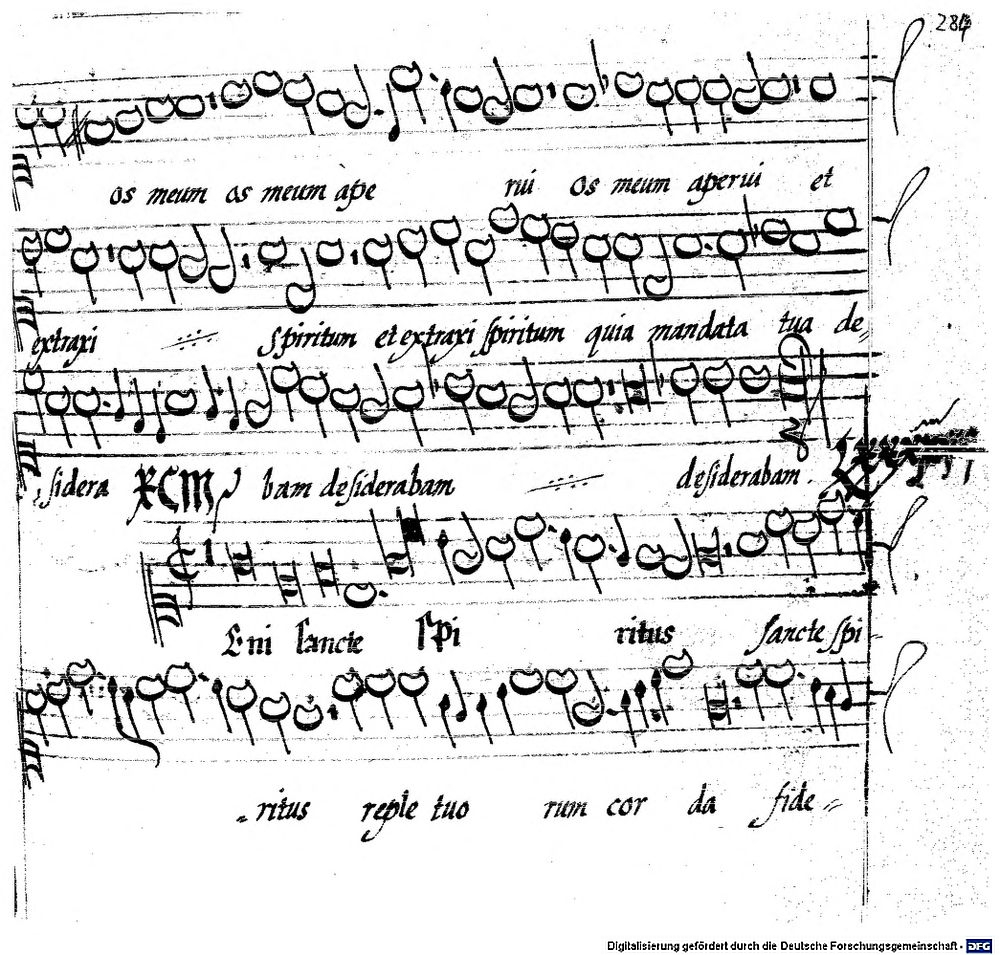 284
os meum os meum ape rui os meum aperui et
extraxi spiritum et extraxi spiritum quia mandata tua de
sidera XCIII bam desiderabam desiderabam
Eni sancte spi ritus sancte spi
ritus reple tuo rum cor da fide
Digitalisierung gefördert durch die Deutsche Forschungsgemeinschaft - DFG